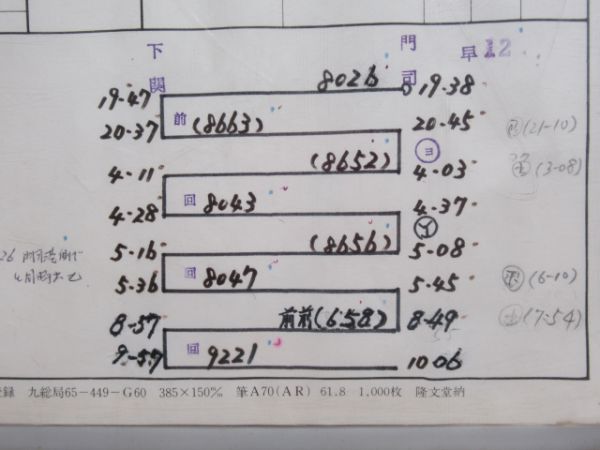 下関 門司 早12
8026 19-38
19-47
20-37 前 (8663) 20-45 (21-10)
(8652) ヨ
4-11 4-03 (3-08)
4-28 回 8043 4-37
(8656)
5-16 5-08
5-36 回 8047 5-45 (6-10)
8-57 前前(658) 8-49 (7-54)
9-57 回 9221 10 06
録 九総局65-449-G60 385×150% 筆A70(AR) 61.8 1,000枚 隆文堂納